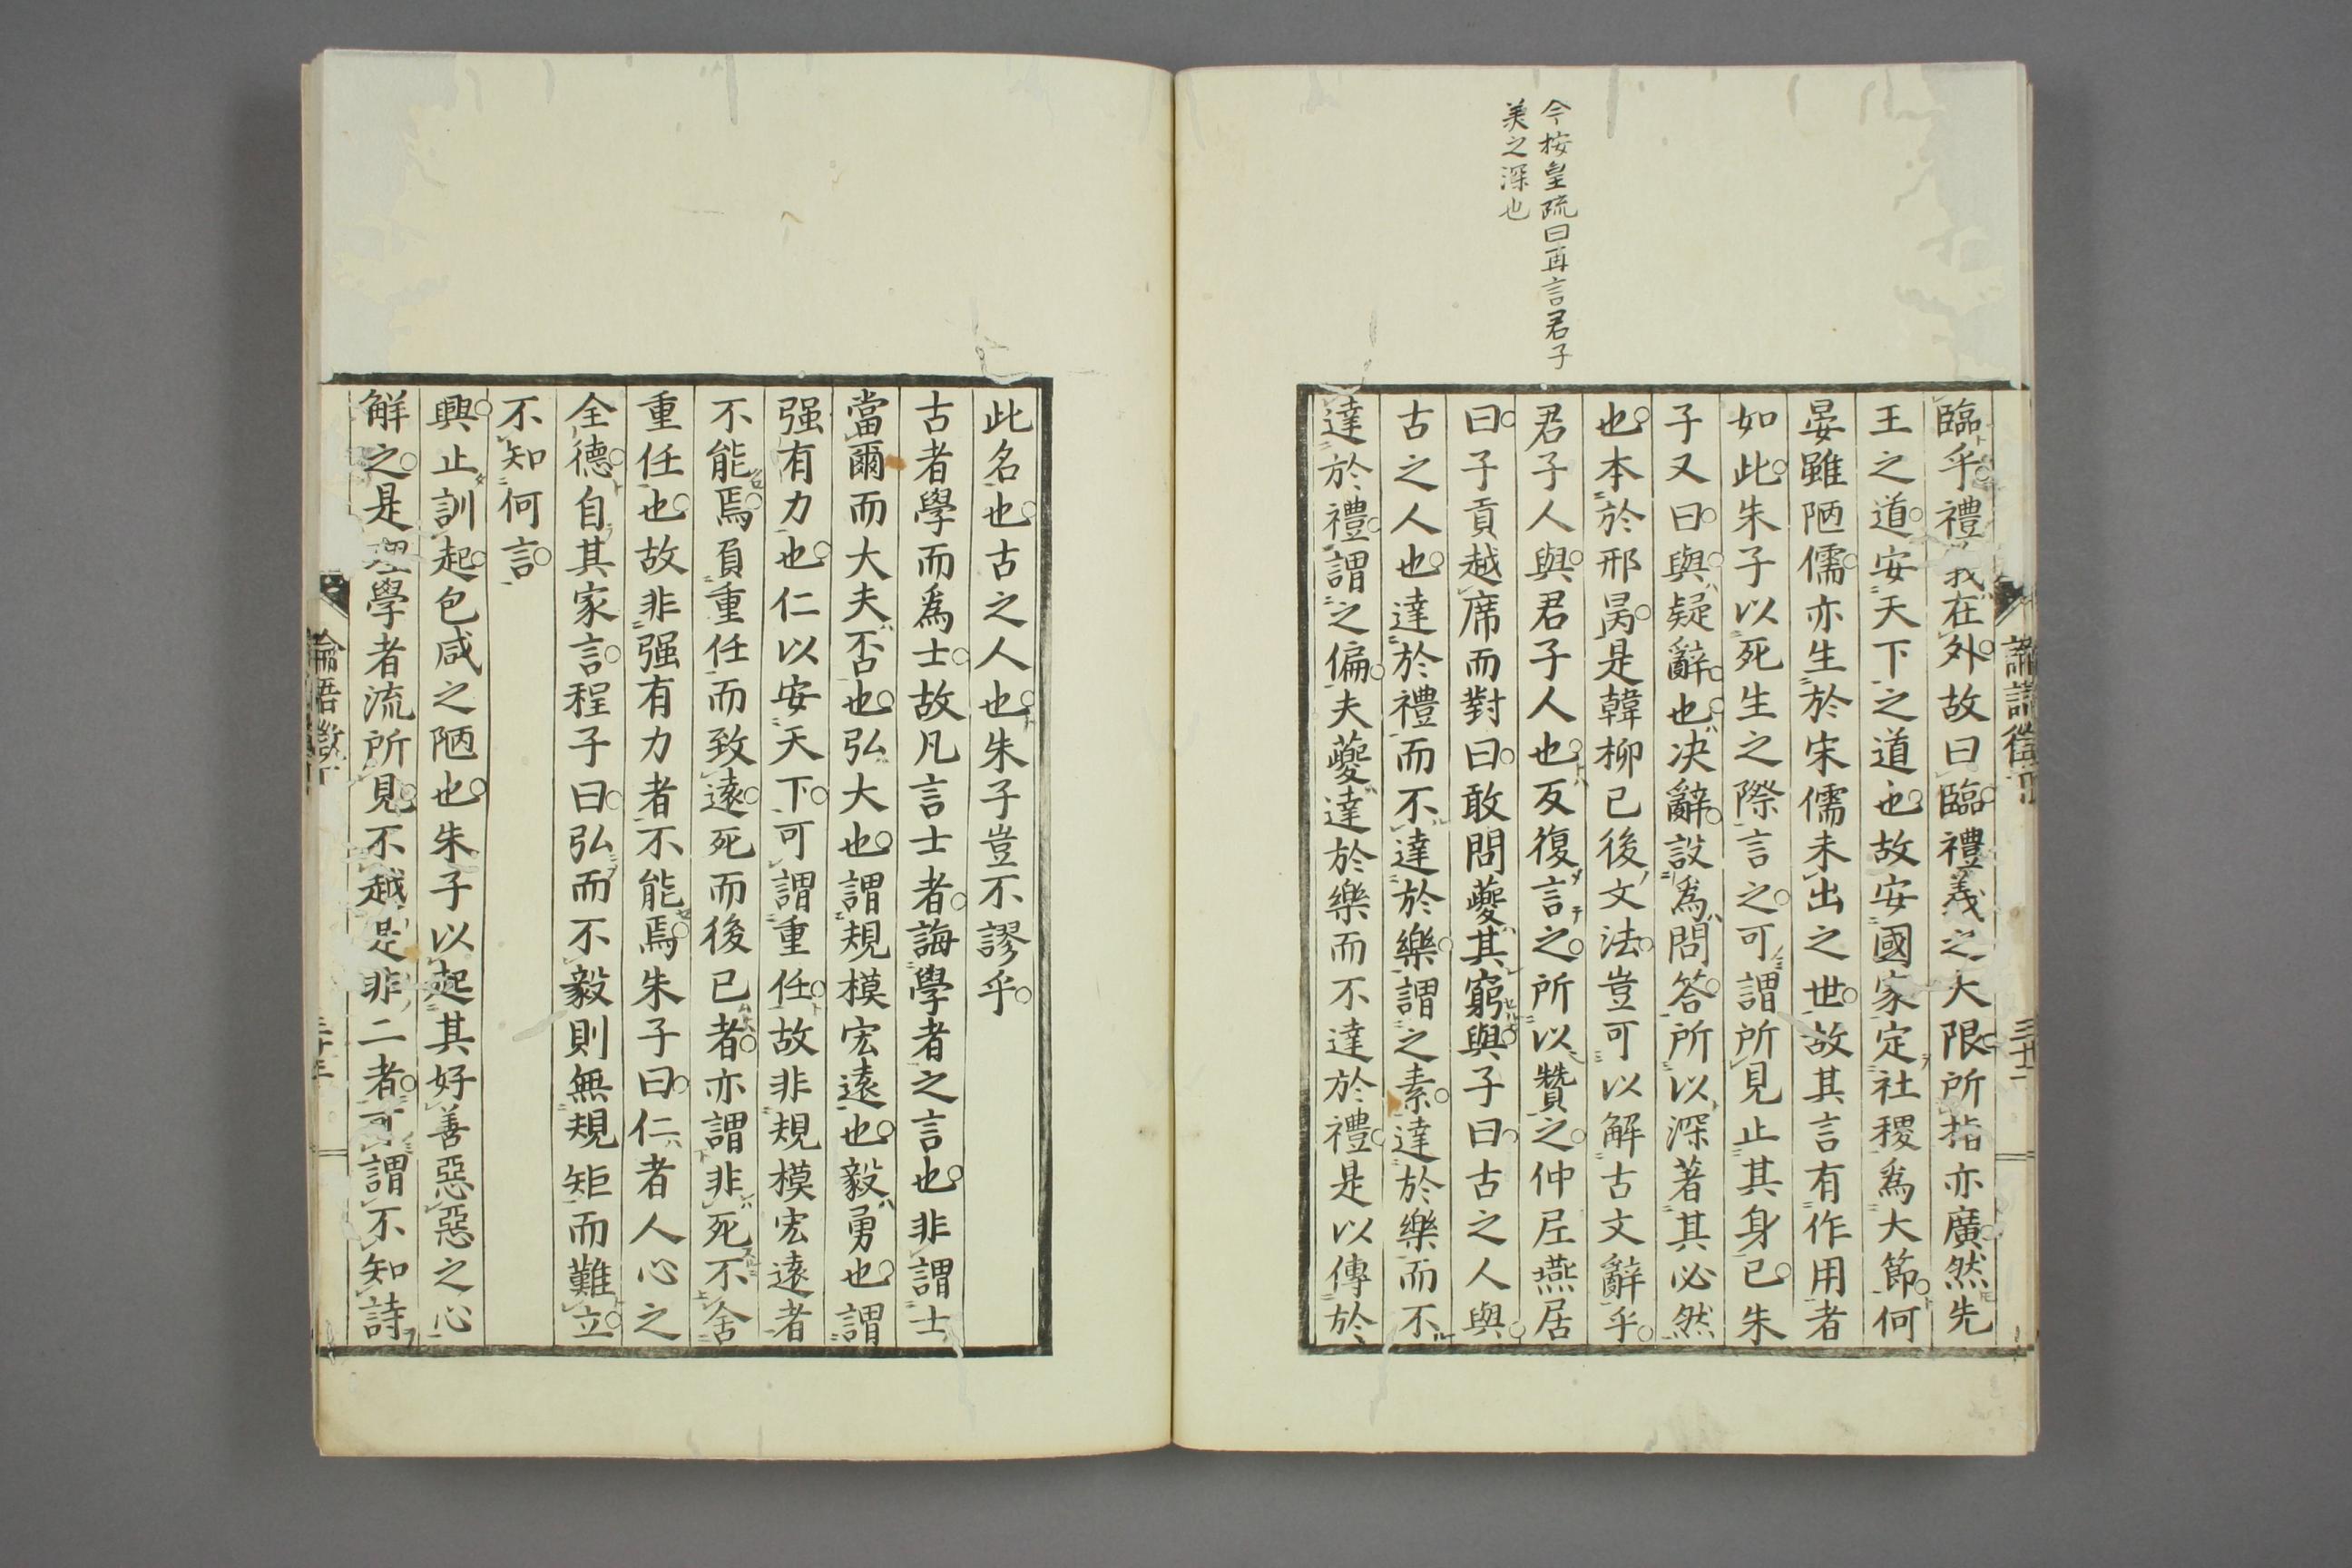 今桉皇疏曰再言君子
美之深也
臨乎禮義在外故曰臨禮義之大限所指亦廣然先
王之道安天下之道也故安國家定社稷爲大節何
晏雖陋儒亦生於宋儒未出之世故其言有作用者
如此朱子以死生之際言之可謂所見止其身已朱
子又曰與疑辭也决辭設爲問答所以深著其必然
也本於邢昺是韓柳已後文法豈可以解古文辭乎
君子人與君子人也反復言之所以贊之仲尼燕居
曰子貢越席而對曰敢問夔其窮與子曰古之人與
古之人也達於禮而不達於樂謂之素達於樂而不
達於禮謂之偏夫夔達於樂而不達於禮是以傳於
此名也古之人也朱子豈不謬乎
古者學而爲士故凡言士者誨學者之言也非謂士
當爾而大夫否也弘大也謂規模宏遠也毅勇也謂
强有力也仁以安天下可謂重任故非規模宏遠者
不能焉負重任而致遠死而後已者亦謂非死不舍
重任也故非强有力者不能焉朱子曰仁者人心之
全德自其家言程子曰弘而不毅則無規矩而難立
不知何言
興止訓起包咸之陋也朱子以起其好善惡惡之心
解之是理學者流所見不越是非二者可謂不知詩
論語徵